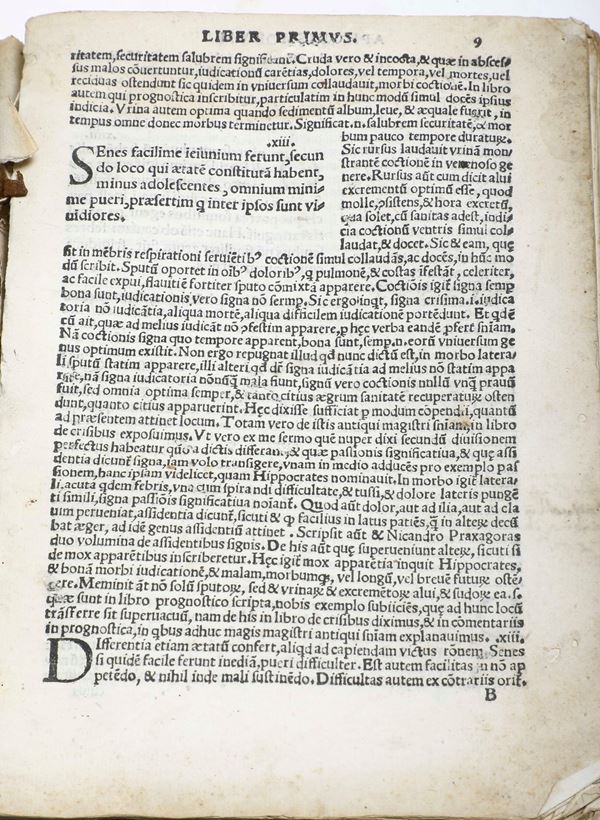 LIBER PRIMVS. 9
ritatem, securitatem salubrem significant. Cruda vero & incocta, & quæ in absces-
sus malos cōuertuntur, iudicationū carētias, dolores, vel tempora, vel mortes, uel
reciduas ostendunt sic quidem in vniuersum collaudauit, morbi coctionē. In libro
autem qui prognostica inscribitur, particulatim in hunc modū simul docēs ipsius
indicia. Vrina autem optima quando sedimentū album, leue, & æquale fuerit, in
tempus omne donec morbus terminetur. Significat.n. salubrem securitatē, & mor
.xiii.
SEnes facilime ieiunium ferunt, secun
do loco qui ætatē constitutā habent,
minus adolescentes, omnium mini-
me pueri, præsertim q̃ inter ipsos sunt vi-
uidiores.
bum pauco tempore duraturꝫ.
Sic rursus laudauit vrinā mon
strantē coctionē in venoso ge
nere. Rursus aūt cum dicit alui
excrementū optimū esse, quod
molle, ꝯsistens, & hora excretū,
qua solet, cū sanitas adest, indi
cia coctionū ventris simul col-
laudat, & docet. Sic & eam, quę
fit in mēbris respirationi seruiētibꝰ coctionē simul collaudās, ac docēs, in hūc mo
dū scribit. Sputū oportet in oībꝰ doloribꝰ, q̃ pulmonē, & costas īfestāt, celeriter,
ac facile expui, flauitiē fortiter sputo cōmixtā apparere. Coctionis igit̃ signa semꝑ
bona sunt, iudicationis vero signa nō semꝑ. Sic ergo inqt, signa crisima.i. iudica
toria nō iudicātia, aliqua mortē, aliqua difficilem iudicationē portēdunt. Et qđē
cū ait, quæ ad melius iudicāt nō ꝯfestim apparere, ꝑ hęc verba eandē ꝓfert sn̄iam.
Nā coctionis signa quo tempore apparent, bona sunt, semꝑ.n. eorū vniuersum ge
nus optimum existit. Non ergo repugnat illud qđ nunc dictū est, in morbo latera/
li sputū statim apparere, illi alteri qđ dē signa iudicātia ad melius nō statim appa
rere, nā signa iudicatoria nōnūq̃ mala fiunt, signū vero coctionis nullū vnq̃ prauū
fuit, sed omnia optima semper, & tanto citius ægrum sanitatē recuperaturꝫ osten
dunt, quanto citius apparuerint. Hęc dixisse sufficiat ꝑ modum cōpendi.i, quantū
ad præsentem attinet locum. Totam vero de istis antiqui magistri sn̄iam in libro
de crisibus exposuimus. Vt vero ex me sermo quē nuper dixi secundū diuisionem
perfectus habeatur quō a dictis differant, & quæ passionis significatiua, & quę assi
dentia dicunt̃ signa, iam volo transigere, vnam in medio adducēs pro exemplo pas
sionem, hanc ipsam videlicet, quam Hippocrates nominauit. In morbo igit̃ latera/
li, acuta qđem febris, vna cum spirandi difficultate, & tussi, & dolore lateris pungē
ti simili, signa passiōis significatiua noīant̃. Quod aūt dolor, aut ad ilia, aut ad cla
uim perueniat, assidentia dicunt̃, sicuti & ꝙ facilius in latus patiēs, q̃ in alterꝫ decū
bat æger, ad idē genus assidentiū attinet. Scripsit aūt & Nicandro Praxagoras
duo volumina de assidentibus signis. De his aūt que superueniunt alterꝫ, sicuti si
de mox apparētibus inscriberetur. Hęc igit̃ mox apparētia inquit Hippocrates,
& bonā morbi iudicationē, & malam, morbumq̢, vel longū, vel breuē futurꝫ ostē-
dere. Meminit aūt nō solū sputorꝫ, sed & vrinarꝫ & excremētorꝫ alui, & sudorꝫ ea.s.
quæ sunt in libro prognostico scripta, nobis exemplo subiiciēs, quę ad hunc locū
trāsferre sit superuacuū, nam de his in libro de crisibus diximus, & in cōmentariis
in prognostica, in qbus adhuc magis magistri antiqui sn̄iam explanauimus. .xiii.
DIfferentia etiam ætatū confert, aliqđ ad capiendam victus rōnem. Senes
si quidē facile ferunt inediā, pueri difficulter. Est autem facilitas in nō ap
petēdo, & nihil inde mali sustinēdo. Difficultas autem ex cōtrariis orit̃.
B